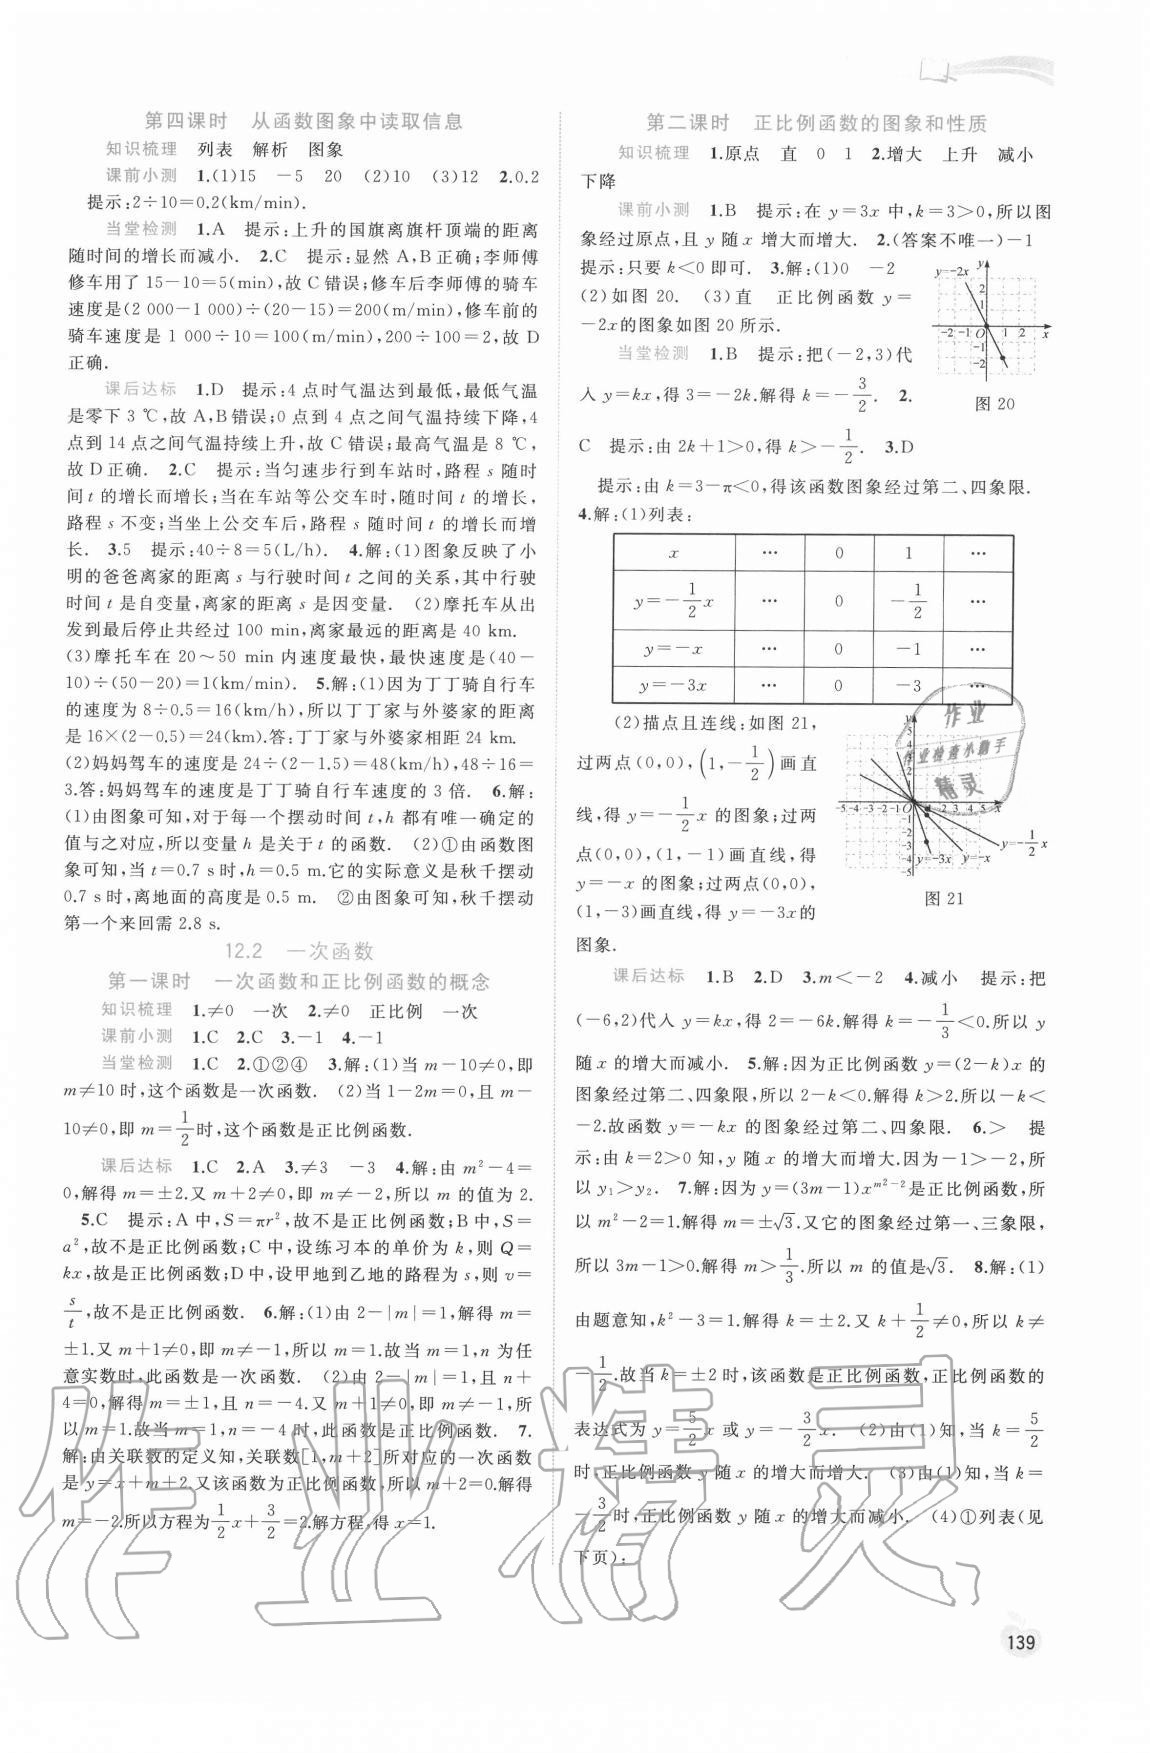 第四课时　从函数图象中读取信息
知识梳理　列表　解析　图象
课前小测　1.(1)15　－5　20　(2)10　(3)12　2.0.2
提示:2÷10=0.2(km/min).
当堂检测　1.A　提示:上升的国旗离旗杆顶端的距离
随时间的增长而减小.　2.C　提示:显然 A,B正确;李师傅
修车用了 15－10=5(min),故 C 错误;修车后李师傅的骑车
速度是(2 000－1 000)÷(20－15)=200(m/min),修车前的
骑车速度是 1 000÷10=100(m/min),200÷100=2,故 D
正确.
课后达标　1.D　提示:4 点时气温达到最低,最低气温
是零下 3 ℃,故 A,B错误;0 点到 4 点之间气温持续下降,4
点到 14 点之间气温持续上升,故 C 错误;最高气温是 8 ℃,
故 D 正确.　2.C　提示:当匀速步行到车站时,路程 s 随时
间 t 的增长而增长;当在车站等公交车时,随时间 t 的增长,
路程 s 不变;当坐上公交车后,路程 s 随时间 t 的增长而增
长.　3.5　提示:40÷8=5(L/h).　4.解:(1)图象反映了小
明的爸爸离家的距离 s 与行驶时间 t 之间的关系,其中行驶
时间 t 是自变量,离家的距离 s 是因变量.　(2)摩托车从出
发到最后停止共经过 100 min,离家最远的距离是 40 km.
(3)摩托车在 20～50 min 内速度最快,最快速度是(40－
10)÷(50－20)=1(km/min).　5.解:(1)因为丁丁骑自行车
的速度为 8÷0.5=16(km/h),所以丁丁家与外婆家的距离
是 16×(2－0.5)=24(km).答:丁丁家与外婆家相距 24 km.
(2)妈妈驾车的速度是 24÷(2－1.5)=48(km/h),48÷16=
3.答:妈妈驾车的速度是丁丁骑自行车速度的 3 倍.　6.解:
(1)由图象可知,对于每一个摆动时间 t,h 都有唯一确定的
值与之对应,所以变量 h 是关于 t 的函数.　(2)①由函数图
象可知,当 t=0.7 s时,h=0.5 m.它的实际意义是秋千摆动
0.7 s时,离地面的高度是 0.5 m.　②由图象可知,秋千摆动
第一个来回需 2.8 s.
12.2　一次函数
第一课时　一次函数和正比例函数的概念
知识梳理　1.≠0　一次　2.≠0　正比例　一次
课前小测　1.C　2.C　3.－1　4.－1
当堂检测　1.C　2.①②④　3.解:(1)当 m－10≠0,即
m≠10 时,这个函数是一次函数.　(2)当 1－2m=0,且 m－
10≠0,即 m=1/2时,这个函数是正比例函数.
课后达标　1.C　2.A　3.≠3　－3　4.解:由 m²－4=
0,解得 m=±2.又 m＋2≠0,即 m≠－2,所以 m 的值为 2.
5.C　提示:A 中,S=πr²,故不是正比例函数;B 中,S=
a²,故不是正比例函数;C 中,设练习本的单价为 k,则 Q=
kx,故是正比例函数;D 中,设甲地到乙地的路程为 s,则 v=
s/t,故不是正比例函数.　6.解:(1)由 2－|m|=1,解得 m=
±1.又 m＋1≠0,即 m≠－1,所以 m=1.故当 m=1,n 为任
意实数时,此函数是一次函数.　(2)由 2－|m|=1,且 n＋
4=0,解得 m=±1,且 n=－4.又 m＋1≠0,即 m≠－1,所
以 m=1.故当 m=1,n=－4 时,此函数是正比例函数.　7.
解:由关联数的定义知,关联数[1,m＋2]所对应的一次函数
是 y=x＋m＋2.又该函数为正比例函数,所以 m＋2=0.解得
m=－2.所以方程为1/2x＋3/2=2.解方程,得 x=1.
第二课时　正比例函数的图象和性质
知识梳理　1.原点　直　0　1　2.增大　上升　减小
下降
课前小测　1.B　提示:在 y=3x 中,k=3＞0,所以图
象经过原点,且 y 随 x 增大而增大.　2.(答案不唯一)－1
提示:只要 k＜0 即可.　3.解:(1)0　－2
(2)如图 20.　(3)直　正比例函数 y=
－2x的图象如图 20 所示.
y=-2x y
2
1
-2 -1 O 1 2 x
-1
-2
图 20
当堂检测　1.B　提示:把(－2,3)代
入 y=kx,得 3=－2k.解得 k=－3/2.　2.
C　提示:由 2k＋1＞0,得 k＞－1/2.　3.D
提示:由 k=3－π＜0,得该函数图象经过第二、四象限.
4.解:(1)列表:
x　…　0　1　…
y=－1/2x　…　0　－1/2　…
y=－x　…　0　－1　…
y=－3x　…　0　－3　…
(2)描点且连线:如图 21,
过两点(0,0),(1,－1/2)画直
线,得 y=－1/2x 的图象;过两
点(0,0),(1,－1)画直线,得
y=－x 的图象;过两点(0,0),
(1,－3)画直线,得 y=－3x的
图象.
作业
作业检查小助手
精灵
y
5
4
-5 -4 -3 -2 -1 O 1 2 3 4 5 x
-1
-2
-3
-4
-5
y=-3x y=-x
y=-1/2 x
图 21
课后达标　1.B　2.D　3.m＜－2　4.减小　提示:把
(－6,2)代入 y=kx,得 2=－6k.解得 k=－1/3＜0.所以 y
随 x 的增大而减小.　5.解:因为正比例函数 y=(2－k)x 的
图象经过第二、四象限,所以 2－k＜0.解得 k＞2.所以－k＜
－2.故函数 y=－kx 的图象经过第二、四象限.　6.＞　提
示:由 k=2＞0 知,y 随 x 的增大而增大.因为－1＞－2,所
以 y₁＞y₂.　7.解:因为 y=(3m－1)x^(m²－2)是正比例函数,所
以 m²－2=1.解得 m=±√3.又它的图象经过第一、三象限,
所以 3m－1＞0.解得 m＞1/3.所以 m 的值是√3.　8.解:(1)
由题意知,k²－3=1.解得 k=±2.又 k＋1/2≠0,所以 k≠
－1/2.故当 k=±2 时,该函数是正比例函数,正比例函数的
表达式为 y=5/2x 或 y=－3/2x.　(2)由(1)知,当 k=5/2
时,正比例函数 y 随 x 的增大而增大.　(3)由(1)知,当 k=
－3/2时,正比例函数 y 随 x 的增大而减小.　(4)①列表(见
下页):
作业精灵
139